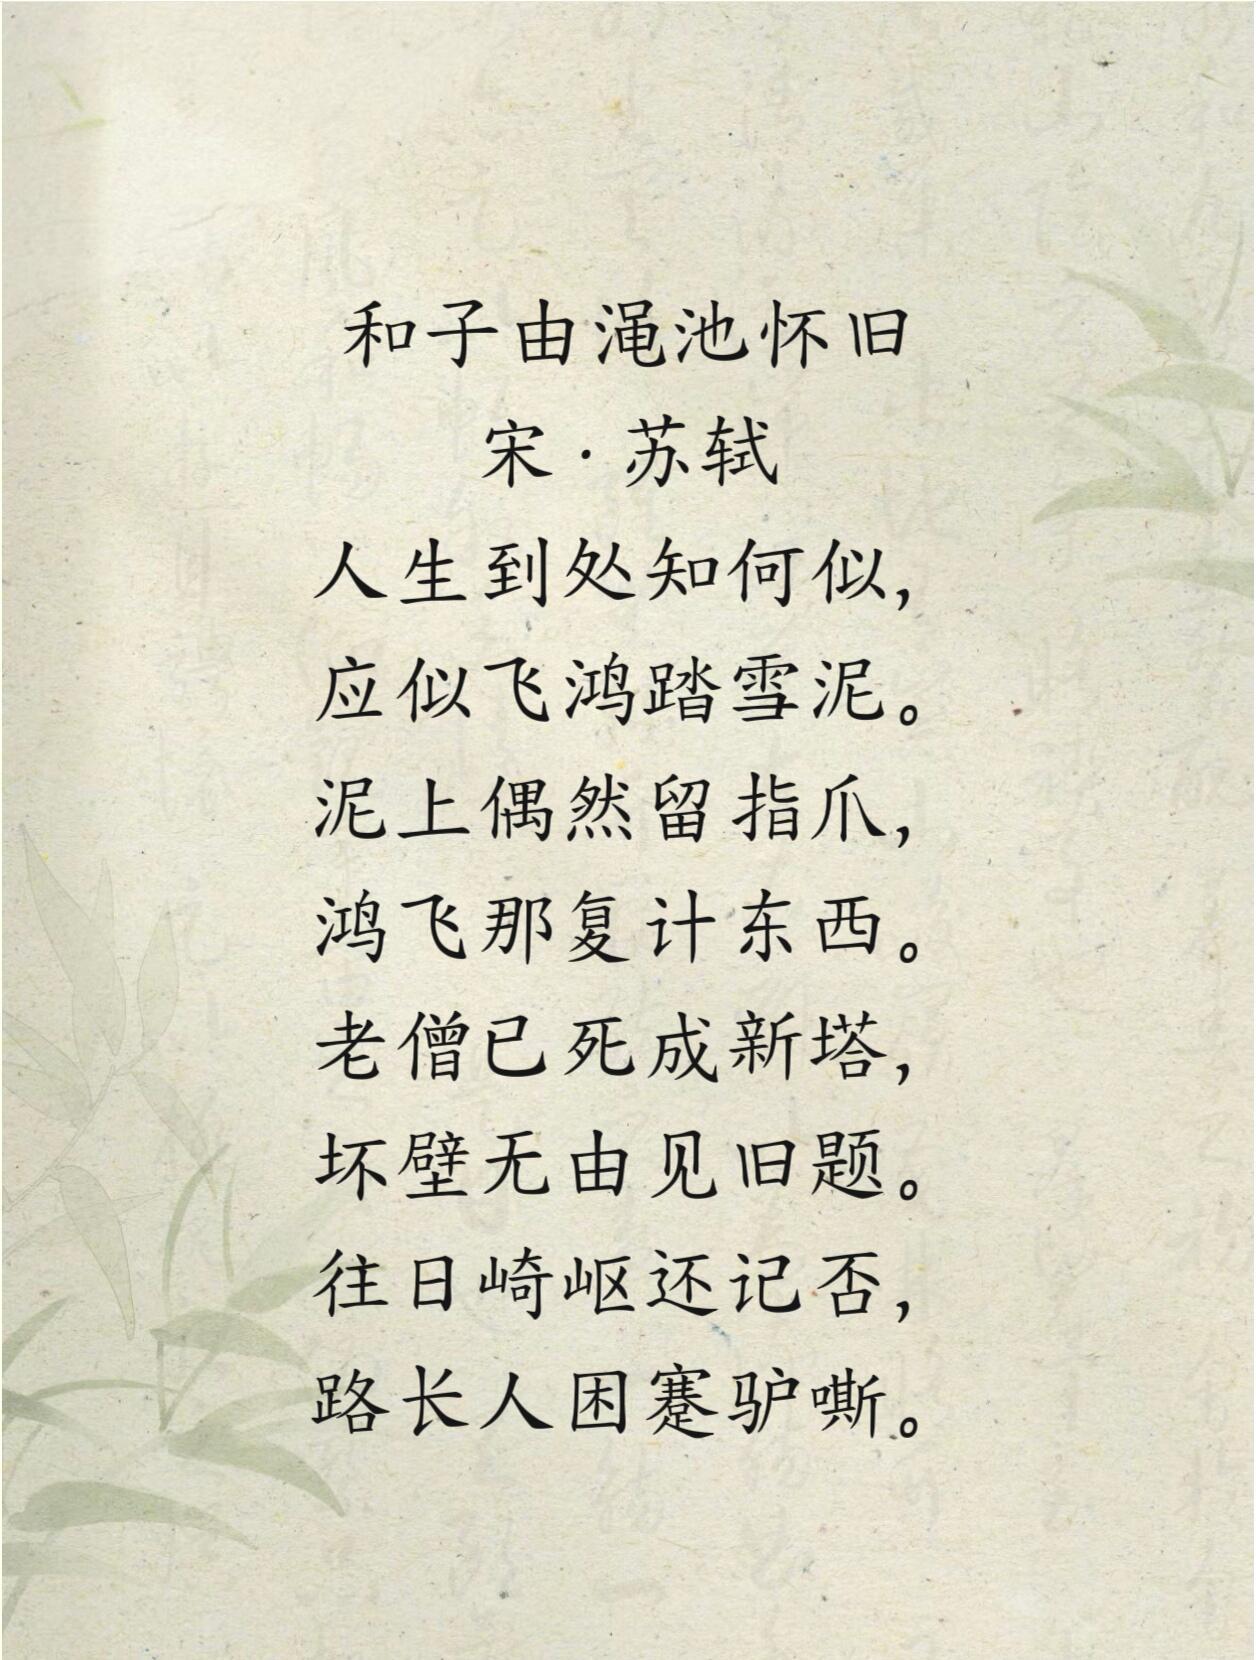 和子由渑池怀旧
宋·苏轼
人生到处知何似，
应似飞鸿踏雪泥。
泥上偶然留指爪，
鸿飞那复计东西。
老僧已死成新塔，
坏壁无由见旧题。
往日崎岖还记否，
路长人困蹇驴嘶。